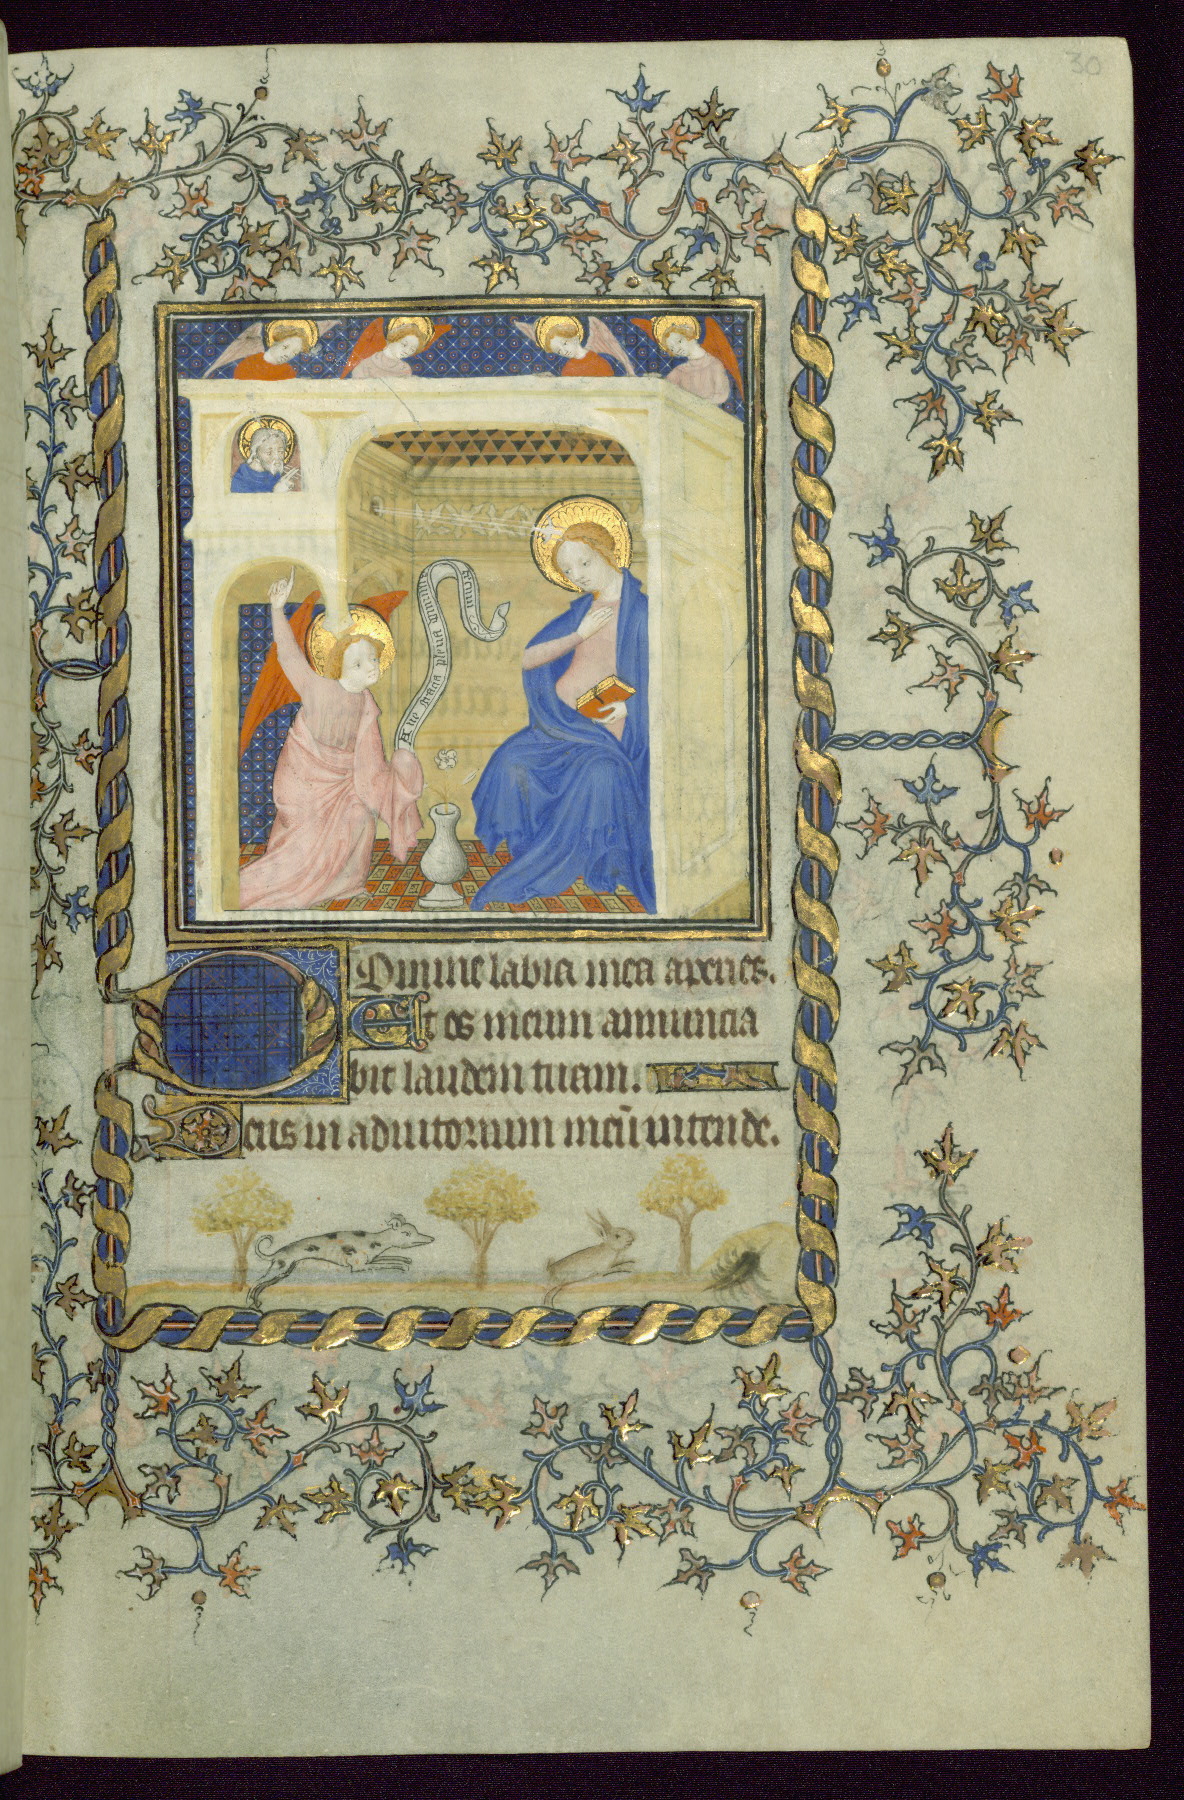 30
Aue gracia plena dominus tecum
Domine labia mea aperies.
Et os meum annuncia
bit laudem tuam.
Deus in adiutorium meū intende.